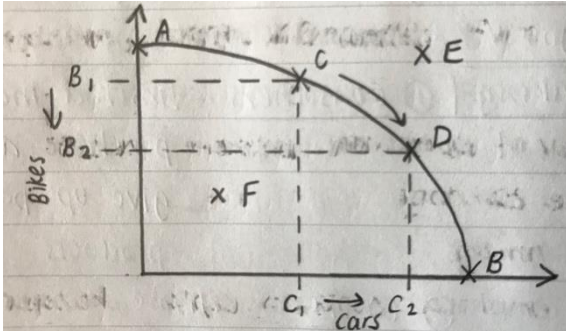 A
C
x E
B₁
D
B₂
Bikes
x F
B
C₁ → C₂
cars